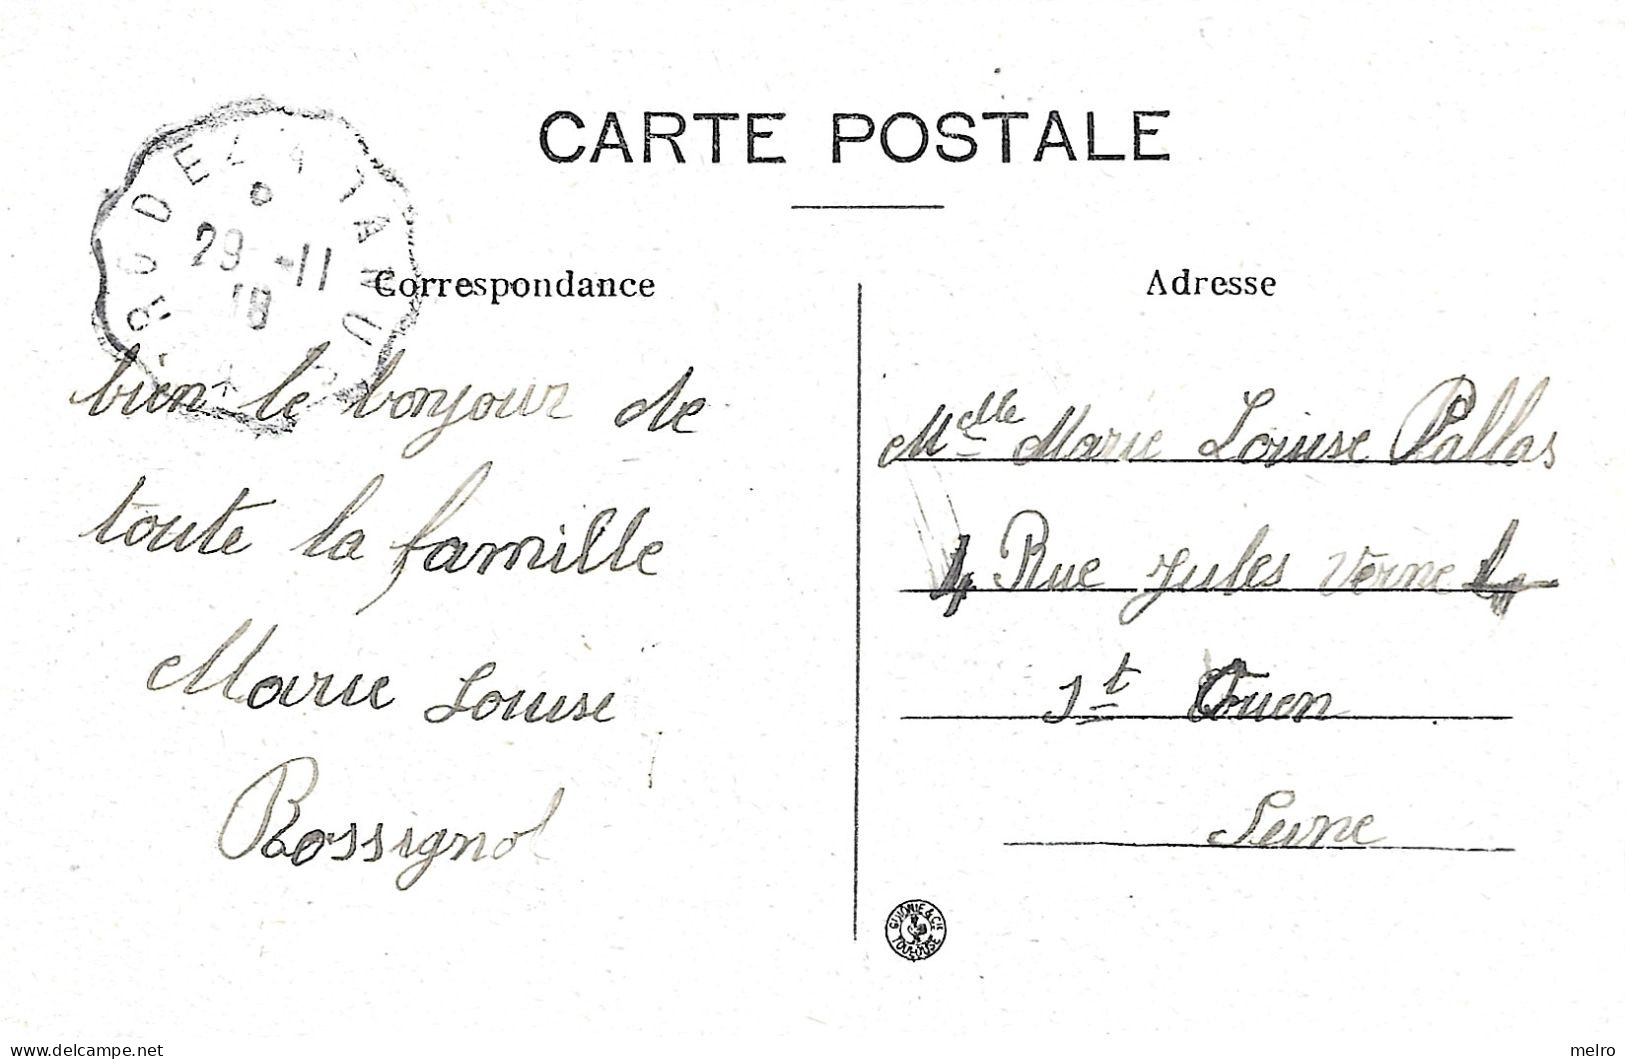 CARTE POSTALE
RODEZ A TANUS
29 -11
Correspondance
bien le bonjour de
toute la famille
Marie Louise
Rossignol
Adresse
Melle Marie Louise Pallas
4 Rue Jules Verne 4
St Ouen
Seine
GUIONIE & Cie
TOULOUSE
delcampe.net
melro